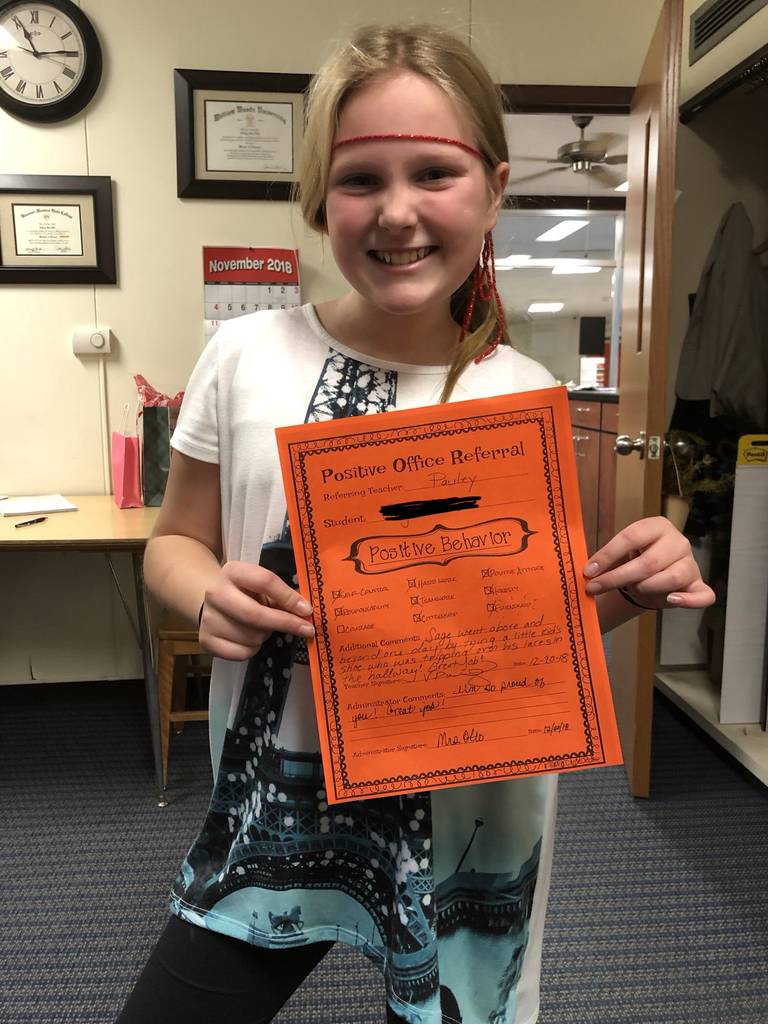 William Woods University
November 2018
1 2 3
4 5 6 7 8 9
11
Post-it
Positive Office Referral
Referring Teacher: Pauley
Student:
Positive Behavior
☒ Self-Control ☒ Hard work ☒ Positive Attitude
☒ Responsibility ☒ Teamwork ☒ Honesty
☐ Courage ☒ Citizenship ☒ Friendship
Additional Comments: Sage went above and
beyond one day by tying a little kid's
shoe who was tripping over his laces in
the hallway! Great job!
Teacher Signature: Date: 12-20-18
Administrator Comments: I'm so proud of
you! Great job!
Administrator Signature: Mrs. Otto Date: 12/20/18